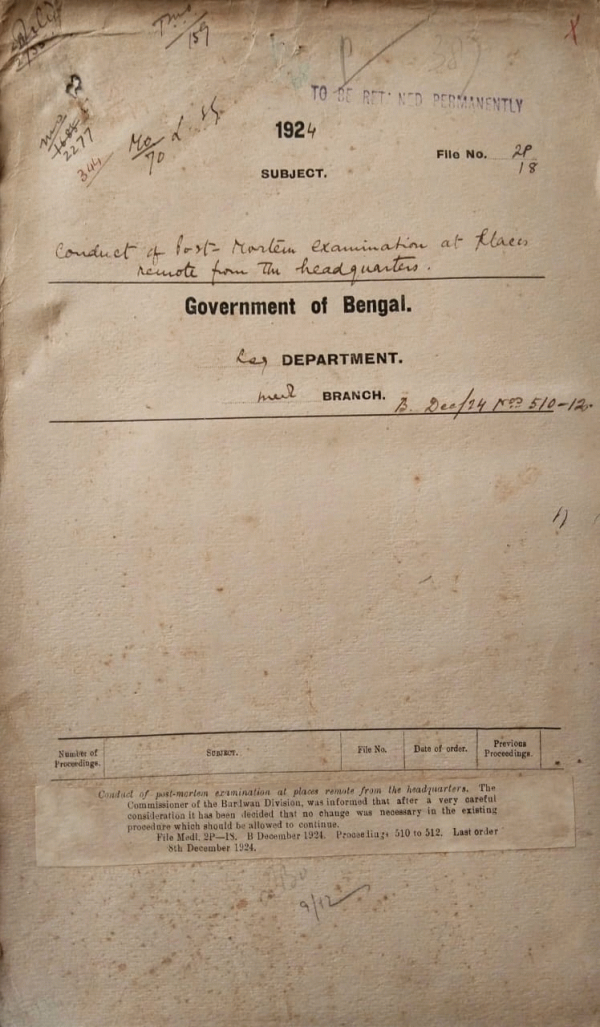 159
TO BE RETAINED PERMANENTLY
1685
2277
344
70
1924
File No. 2P/18
SUBJECT.
Conduct of Post-Mortem examination at places
remote from the headquarters.
Government of Bengal.
DEPARTMENT.
BRANCH.
B. Dec/24 Nos 510-12.
Number of Proceedings.
SUBJECT.
File No.
Date of order.
Previous Proceedings.
Conduct of post-mortem examination at places remote from the headquarters. The
Commissioner of the Burdwan Division, was informed that after a very careful
consideration it has been decided that no change was necessary in the existing
procedure which should be allowed to continue.
File Medl. 2P—18. B December 1924. Proceedings 510 to 512. Last order
8th December 1924.
9/12